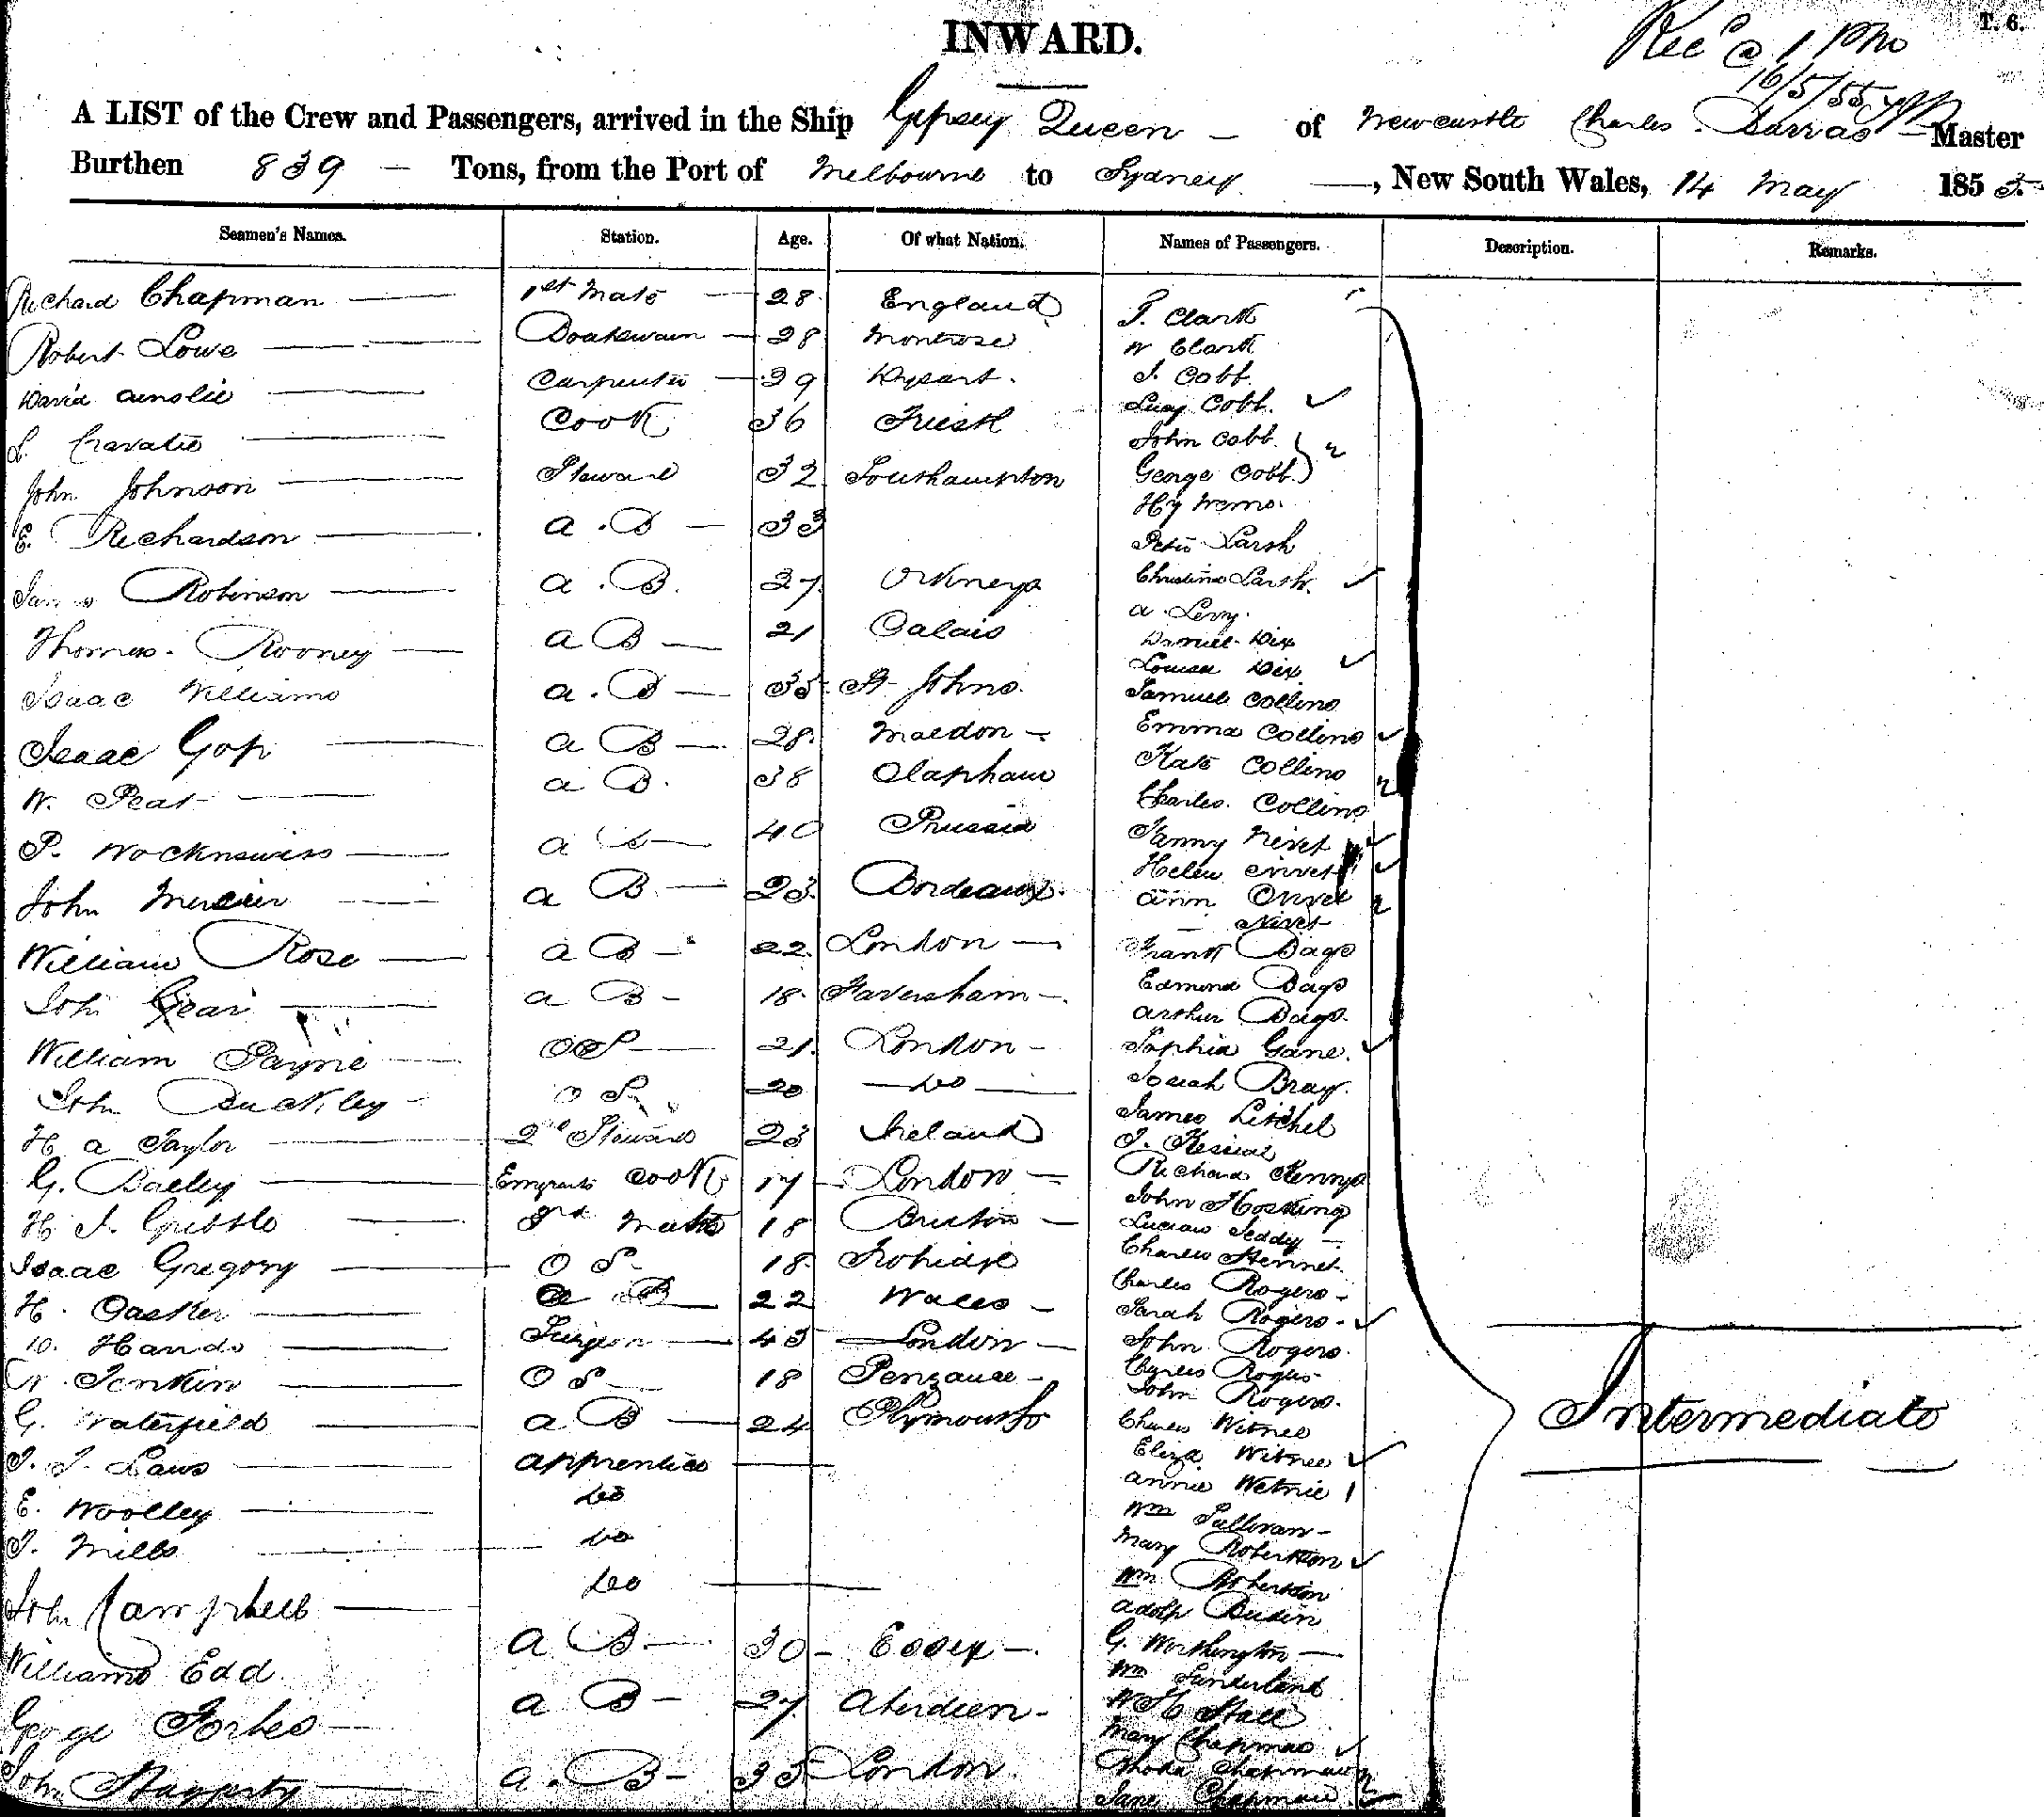 INWARD.
T. 6.
Recd @ 1 PM
16/5/55
A LIST of the Crew and Passengers, arrived in the Ship Gypsey Queen — of Newcastle Charles Barras Master
Burthen 839 — Tons, from the Port of Melbourne to Sydney —, New South Wales, 14 May 1855
Seamen's Names. Station. Age. Of what Nation. Names of Passengers. Description. Remarks.
Richard Chapman 1st Mate 28 England T. Clark
Robert Lowe Boatswain 28 Montrose W Clark
David Ainslie Carpenter 39 Dysart J. Cobb
Lucy Cobb
L. Cook 36 Triest John Cobb
John Johnson Steward 32 Southampton George Cobb
Hy
E. Richardson a. B 33 Peter Larsh
James Robinson a. B. 27 Orkneys Christina Larsh
a. Levy
Thomas Rooney a B 21 Calais Daniel Dix
Louisa Dix
Isaac Williams a. B 35 St Johns Samuel Collins
Isaac a B 28 Maldon Emma Collins
W. Peat a B. 38 Clapham Kate Collins
Charles Collins
P. a B 40 Prussia Fanny Nivet
Helen Nivet
John Mercier a B 23 Bordeaux Ann Nivet
— Nivet
William Rose a B 22 London Frank Bags
John Gear a B 18 Faversham Edmond Bags
Arthur Bags
William Payne O S 21 London Sophia Gane
John Buckley O S 20 Do Josiah Bray
H a Taylor 2nd Steward 23 Ireland James
J.
G. Bailey Emgrants Cook 17 London Richard Kennys
John Hosking
H J. Gribble 3rd Mate 18 Brixton
Charles
Isaac Gregory O S 18 Charles Rogers
H. Oasker a B 22 Wales Sarah Rogers
Hands Surgeon 45 London John Rogers
W. Jenkin O S 18 Penzance Charles Rogers
John Rogers
G. Waterfield a B 24 Plymouth Charles Witnee
J. J. Laws apprentice Eliza Witnee
Annie Wetnie
E. Woolley Do Wm Sullivan
J. Mills Do Mary Robertson
John Campbell Do Wm Robertson
Adolp
Williams Edd a B 30 Essex G. Worthington
Wm Sunderland
George Forbes a B 27 Aberdeen W H Hall
Mary Chapman
John Haggerty a. B 35 London Rhoda Chapman
Jane Chapman
Intermediate